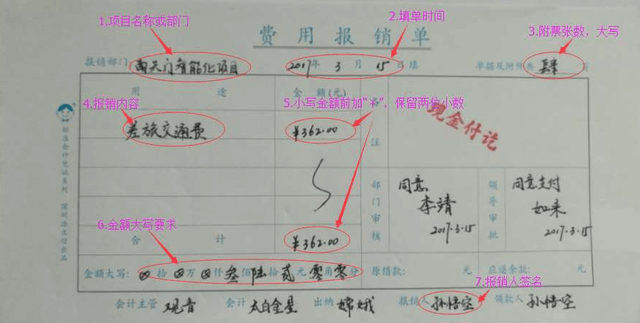 1.项目名称或部门
2.填单时间
3.附票张数，大写
费用报销单
报销部门: 南天门智能化项目 2017年 3月 15日填 单据及附件共 页
用途 金额(元)
4.报销内容
5.小写金额前加"¥"，保留两位小数
差旅交通费 ¥362.00
备注
现金付讫
部门审核
同意
李靖
2017.3.15
领导审批
同意支付
如来
2017.3.15
6.金额大写要求
合计 ¥362.00
金额大写: 拾 万 仟 叁佰 陆拾 贰元 零角 零分 原借款: 元 应退余款: 元
7.报销人签名
会计主管 观音 会计 太白金星 出纳 嫦娥 报销人 孙悟空 领款人 孙悟空